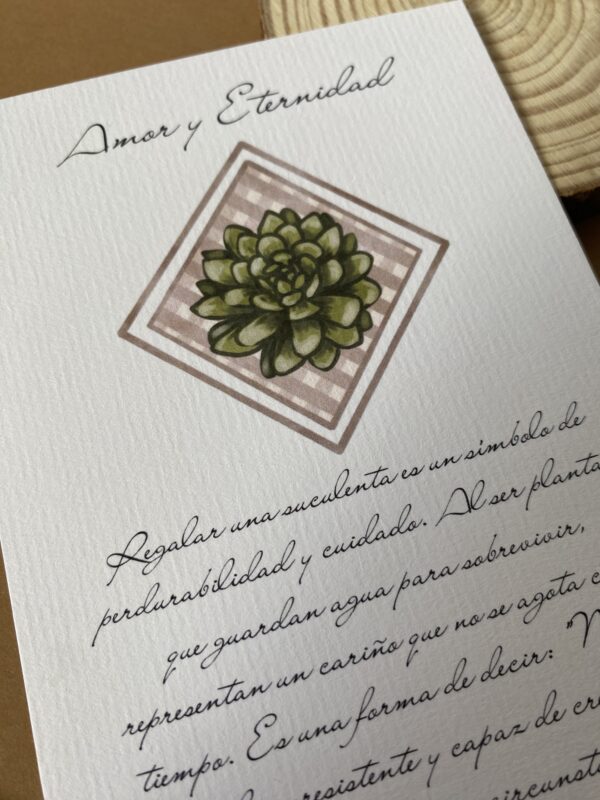 Amor y Eternidad
Regalar una suculenta es un símbolo de
perdurabilidad y cuidado. Al ser planta
que guardan agua para sobrevivir,
representan un cariño que no se agota
tiempo. Es una forma de decir: "N
resistente y capaz de cre
circunst